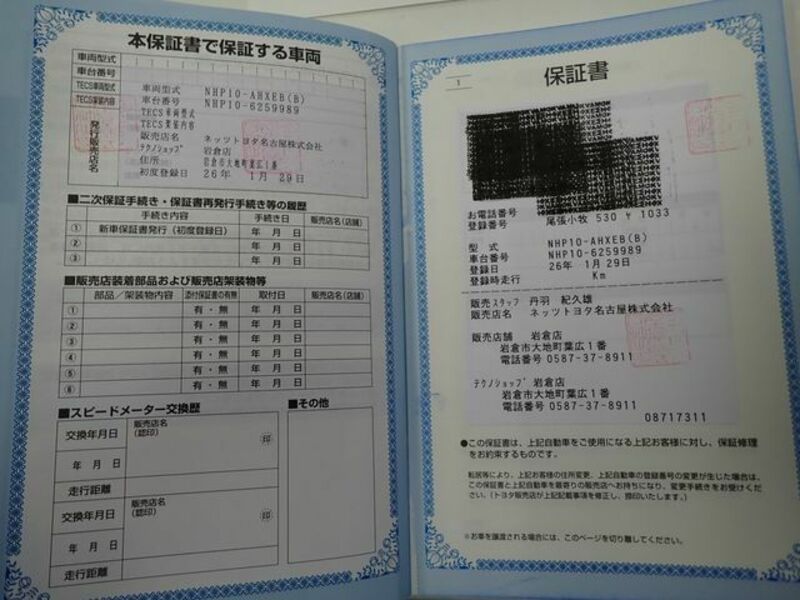 本保証書で保証する車両
車両型式
車台番号
TECS車両型式
TECS架装内容
発行販売店名
車両型式 NHP10-AHXEB(B)
車台番号 NHP10-6259989
TECS車両型式
TECS架装内容
販売店名 ネッツトヨタ名古屋株式会社
テクノショップ 岩倉店
住所 岩倉市大地町葉広1番
初度登録日 26年 1月 29日
■二次保証手続き・保証書再発行手続き等の履歴
手続き内容 手続き日 販売店名(店舗)
① 新車保証書発行(初度登録日) 年 月 日
② 年 月 日
③ 年 月 日
■販売店装着部品および販売店架装物等
部品/架装物内容 添付保証書の有無 取付日 販売店名(店舗)
① 有・無 年 月 日
② 有・無 年 月 日
③ 有・無 年 月 日
④ 有・無 年 月 日
⑤ 有・無 年 月 日
⑥ 有・無 年 月 日
■スピードメーター交換歴
交換年月日 販売店名
(認印)
年 月 日 印
走行距離
交換年月日 販売店名
(認印)
年 月 日 印
走行距離
■その他
1
保証書
お電話番号
登録番号 尾張小牧 530 ﾘ 1033
型 式 NHP10-AHXEB(B)
車台番号 NHP10-6259989
登録日 26年 1月 29日
登録時走行 Km
販売スタッフ 丹羽 紀久雄
販売店名 ネッツトヨタ名古屋株式会社
販売店舗 岩倉店
岩倉市大地町葉広1番
電話番号 0587-37-8911
テクノショップ 岩倉店
岩倉市大地町葉広1番
電話番号 0587-37-8911
08717311
●この保証書は、上記自動車をご使用になる上記お客様に対し、保証修理
をお約束するものです。
転居等により、上記お客様の住所変更、上記自動車の登録番号の変更が生じた場合は、
この保証書と上記自動車を最寄りの販売店へお持ちになり、変更手続きをお受けくだ
さい。(トヨタ販売店が上記記載事項を修正し、捺印いたします。)
※お車を譲渡される場合には、このページを切り離してください。